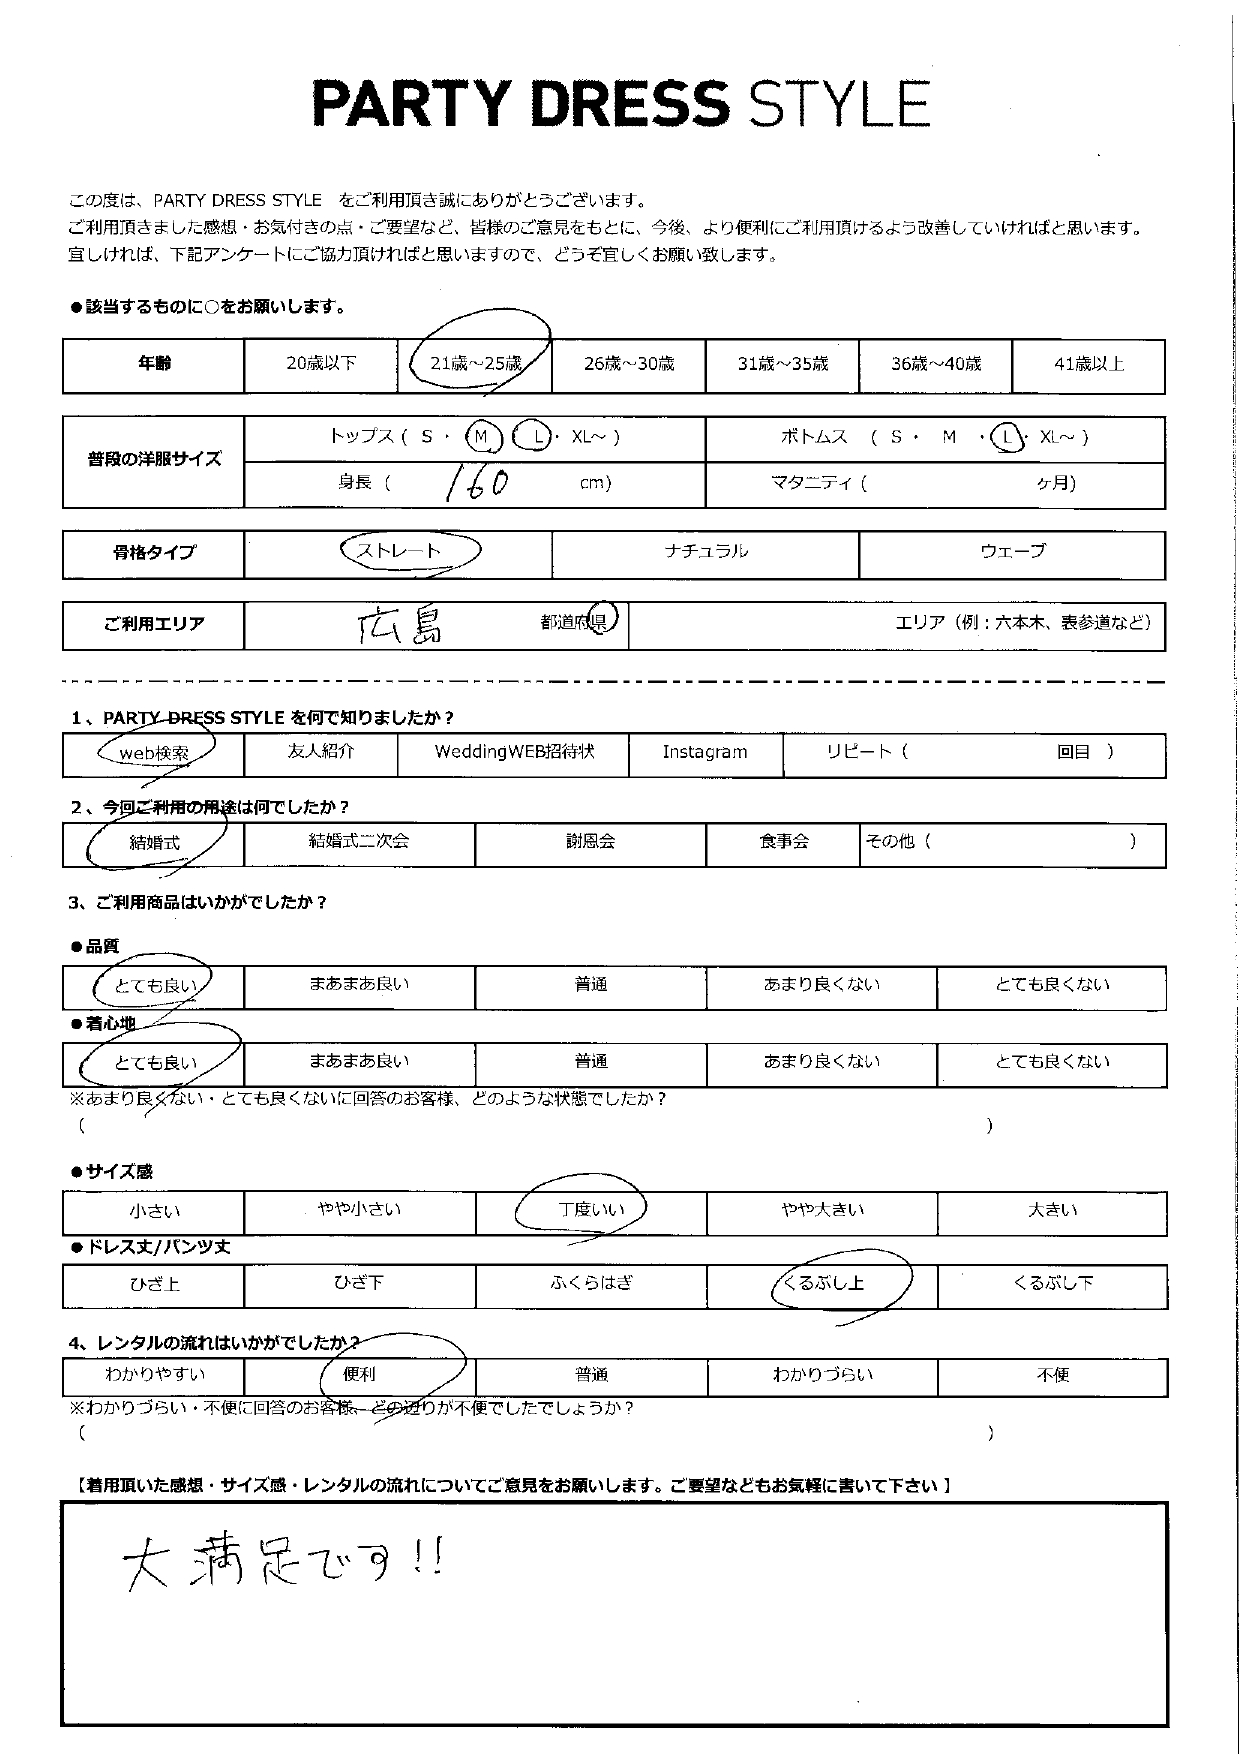 PARTY DRESS STYLE
この度は、PARTY DRESS STYLE をご利用頂き誠にありがとうございます。
ご利用頂きました感想・お気付きの点・ご要望など、皆様のご意見をもとに、今後、より便利にご利用頂けるよう改善していければと思います。
宜しければ、下記アンケートにご協力頂ければと思いますので、どうぞ宜しくお願い致します。
●該当するものに○をお願いします。
年齢 20歳以下 21歳～25歳 26歳～30歳 31歳～35歳 36歳～40歳 41歳以上
普段の洋服サイズ トップス ( S ・ M L ・ XL～ ) ボトムス ( S ・ M ・ L ・ XL～ )
身長 ( 160 cm) マタニティ ( ヶ月)
骨格タイプ ストレート ナチュラル ウェーブ
ご利用エリア 広島 都道府県 エリア（例：六本木、表参道など）
1、PARTY DRESS STYLE を何で知りましたか？
web検索 友人紹介 WeddingWEB招待状 Instagram リピート ( 回目 )
2、今回ご利用の用途は何でしたか？
結婚式 結婚式二次会 謝恩会 食事会 その他 ( )
3、ご利用商品はいかがでしたか？
●品質
とても良い まあまあ良い 普通 あまり良くない とても良くない
●着心地
とても良い まあまあ良い 普通 あまり良くない とても良くない
※あまり良くない・とても良くないに回答のお客様、どのような状態でしたか？
( )
●サイズ感
小さい やや小さい 丁度いい やや大きい 大きい
●ドレス丈/パンツ丈
ひざ上 ひざ下 ふくらはぎ くるぶし上 くるぶし下
4、レンタルの流れはいかがでしたか？
わかりやすい 便利 普通 わかりづらい 不便
※わかりづらい・不便に回答のお客様、どの辺りが不便でしたでしょうか？
( )
【着用頂いた感想・サイズ感・レンタルの流れについてご意見をお願いします。ご要望などもお気軽に書いて下さい】
大満足です!!